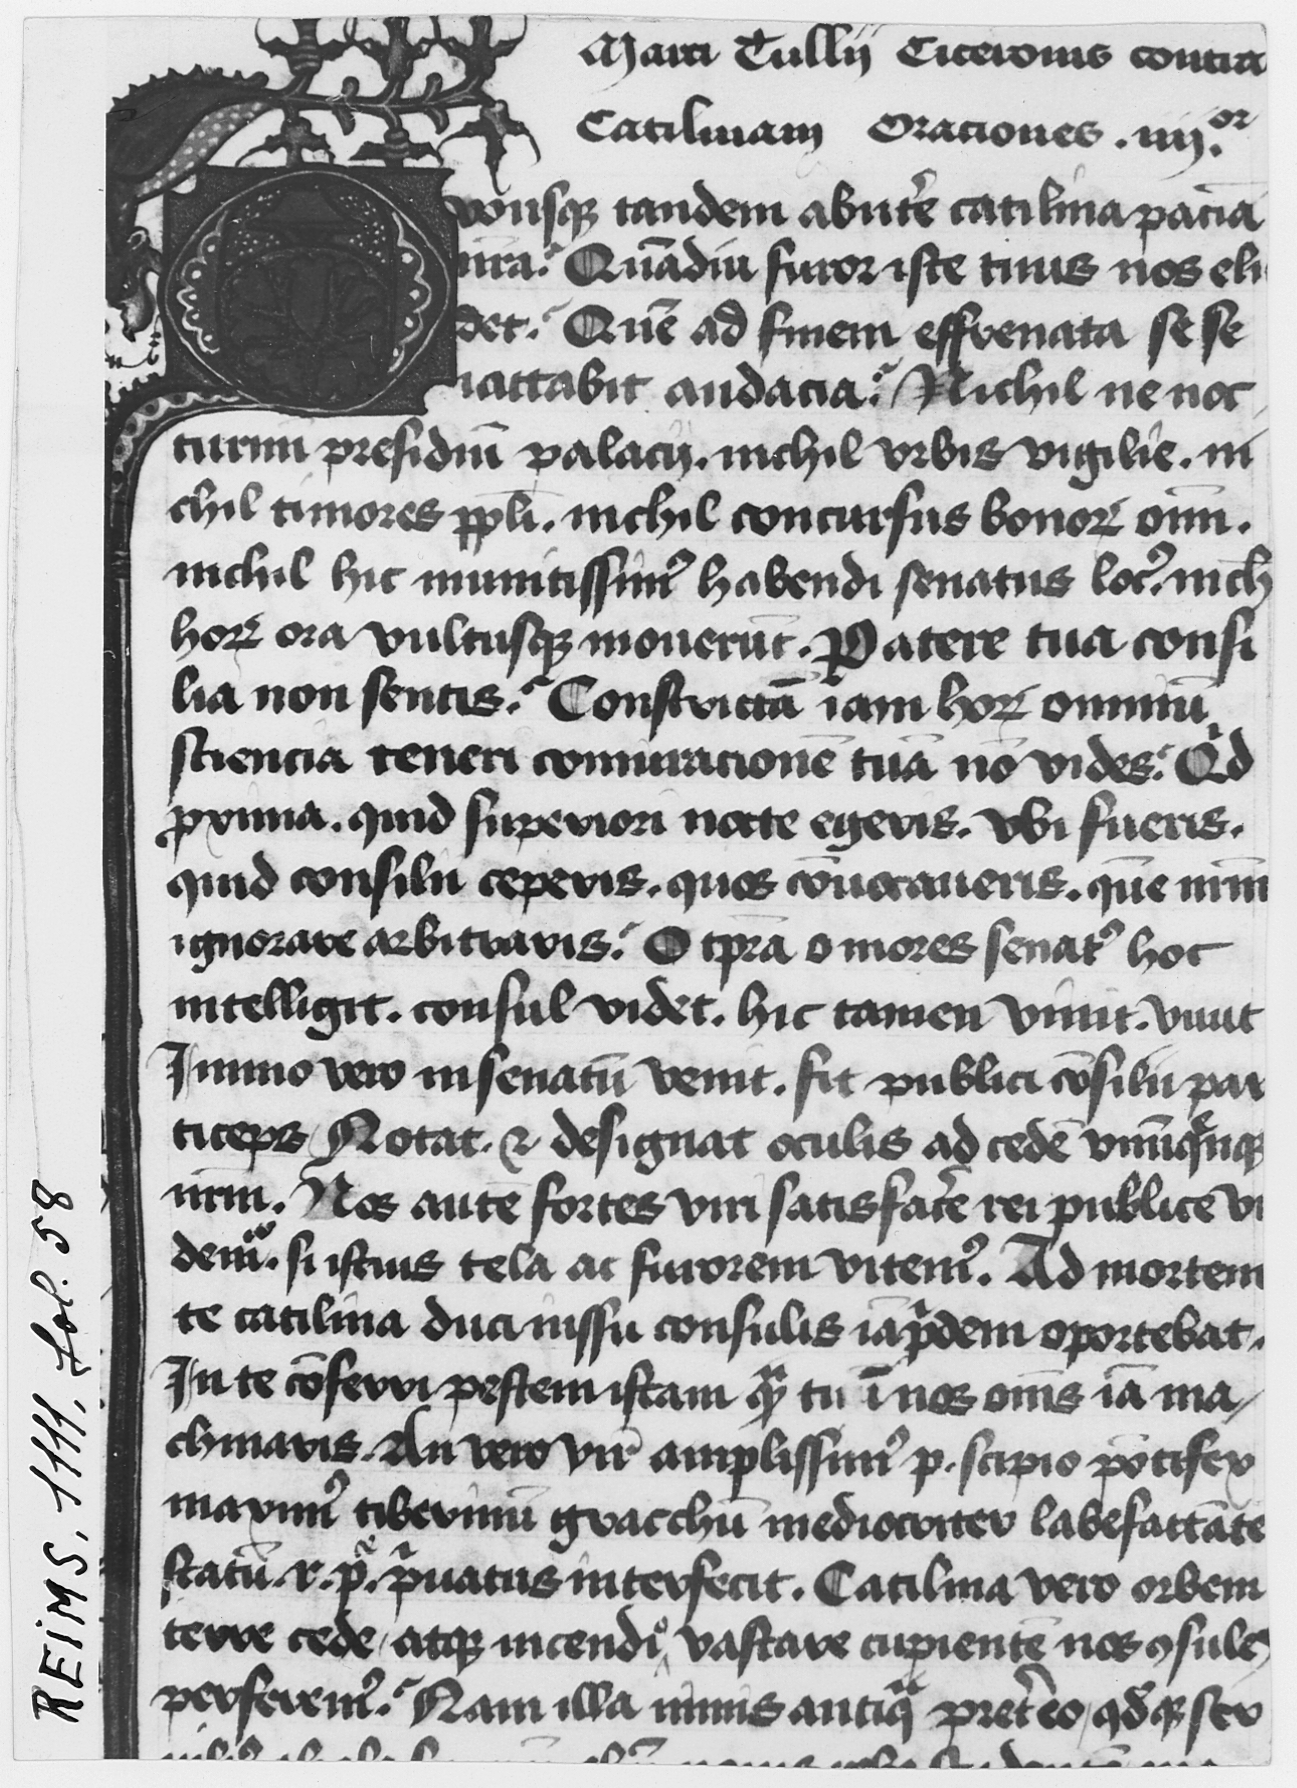 Marci Tullii Ciceronis contra
Catilinam Oraciones .iiij.or
Quousq; tandem abutēre catilina paciā
nr̄a? Quādiu furor iste tuus nos elu
det? Quē ad finem effrenata se se
iactabit audacia? Nichil ne noc
turnū presidiū palacij. nichil vrbis vigilie. ni
chil timores ppl̄i. nichil concursus bonoꝝ oīm.
nichil hic munitissimꝰ habendi senatus locꝰ. nich
hoꝝ ora vultusq; mouerūt. Patere tua consi
lia non sentis? Constrictā iam hoꝝ omniū
sciencia teneri coniuracionē tuā nō vides? Qd
ꝓxima. quid superiori nocte egeris. vbi fueris.
quid consilii ceperis. quos cōuocaueris. quē nr̄m
ignorare arbitraris? O tp̄ra o mores senatꝰ hoc
intelligit. consul videt. hic tamen viuit. viuit
Immo vero in senatū venit. fit publici cōsilii par
ticeps Notat. & designat oculis ad cedē vnūquēq;
nr̄m. Nos autē fortes viri satisfacēre rei publice vi
demꝰ. si istius tela ac furorem vitemꝰ. Ad mortem
te catilina duci iussu consulis iā pridem oportebat.
In te cōferri pestem istam quā tu ī nos om̄s iā ma
chinaris. An vero vir amplissimꝰ p. scipio pōtifex
maximꝰ tiberinum gracchū mediocriter labefactātē
statū. r. p. priuatus interfecit. Catilina vero orbem
terre cede atq; incendiꝰ vastare cupientē nos ꝯsules
perferemꝰ? Nam illa nimis antiqua pretēreo qdq; ser